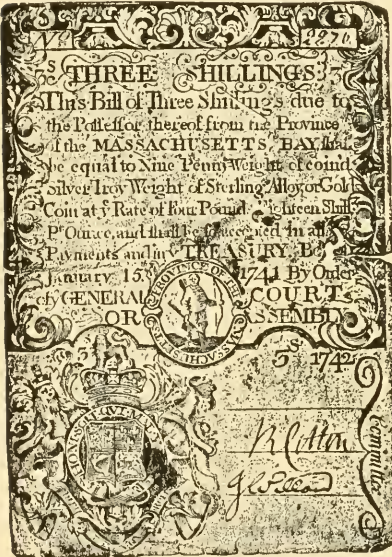 2270
THREE SHILLINGS:
This Bill of Three Shillings due to
the Possessor thereof from the Province
of the MASSACHUSETTS BAY, shall
be equal to Nine Penny Weight of coind
Silver Troy Weight of Sterling Alloy or Gold
Coin at yͤ Rate of Four Pound Eighteen Shill
Pʳ Ounce, and shall be so accepted in all
Payments and in yͤ TREASURY, Bo
January 15 1741 By Order
of yͤ GENERAL COURT
OR ASSEMBLY
PROVINCE OF THE
MASSACHUSETTS
3ˢ 1742
HONI SOIT QUI MAL Y
R Cotton
Committee